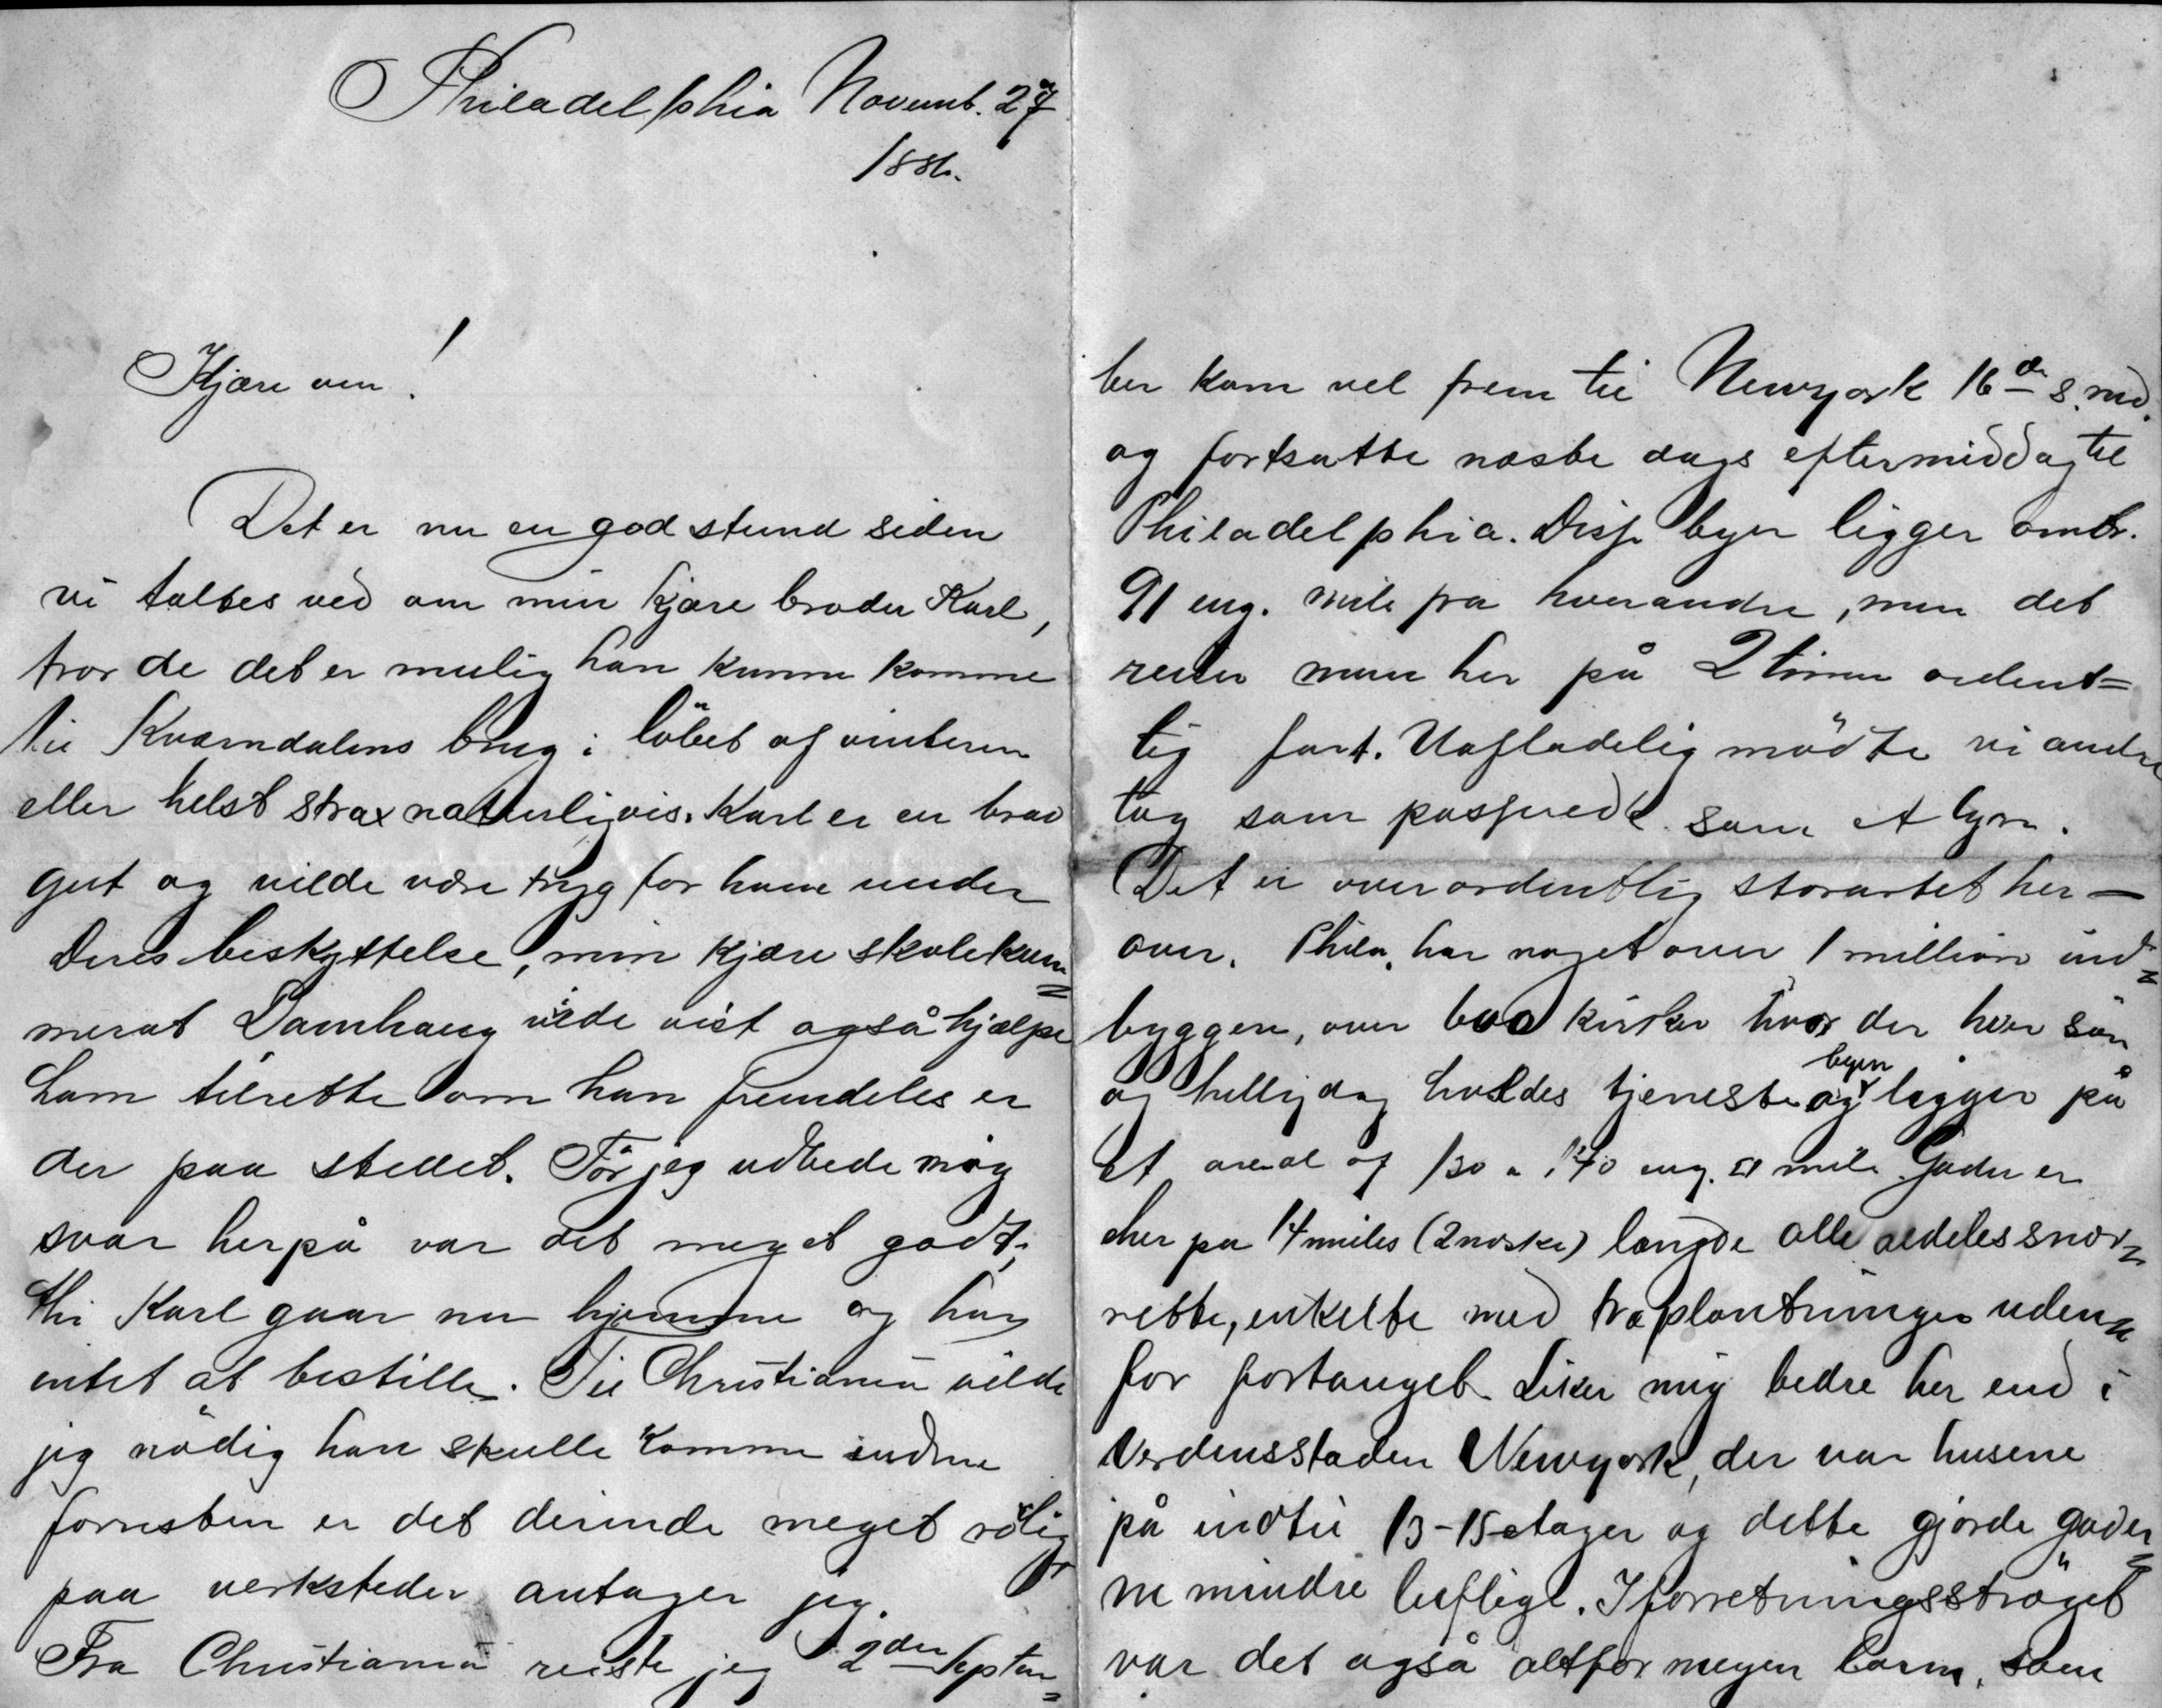 Philadelphia Novemb. 27
1886.
Kjære ven!
Det er nu en god stund siden
vi taltes ved om min kjære broder Karl,
tror de det er mulig han kunne komme
til Kværndalens brug i löbet af vinteren
eller helst strax naturligvis. Karl er en brav
gut og vilde være tryg for ham under
Deres beskyttelse, min kjære skolekam=
merat Damhaug vilde vist også hjælpe
ham tilrette om han fremdeles er
der paa stedet. Tör jeg udbede mig
svar herpå var det meget godt;
thi Karl gaar nu hjemme og har
intet at bestille. Til Christiania vilde
jeg nödig han skulle komme
forresten er det derinde meget
paa verksteder antager jeg.
Fra Christiania reiste jeg 2den Septem=
ber kom vel frem til Newyork 16de s. md.
og fortsatte næste dags eftermiddag til
Philadelphia. Disse byer ligger omtr.
91 eng. mile fra hverandre, men det
reiser man her på 2 timer ordent=
lig fort. Uafladelig mödte vi andre
tog som passerede som et lyn.
Det er overordentlig storartet her=
over. Phila. har noget over 1 million ind=
byggere, over 600 kirker hvor der hver sön
og helligdag holdes tjeneste og byen ligger på
et areal af 130 a 140 eng. □ mile. Gader er
her på 14 miles (2 norske) længde alle aldeles snor=
rette, enkelte med træplantninger uden=
for fortauget. Liker mig bedre her end i
Verdensstaden Newyork, der var husene
på indtil 13-15 etager og dette gjorde gader=
ne mindre luftige. I forretningsströget
var det også altfor megen larm, som